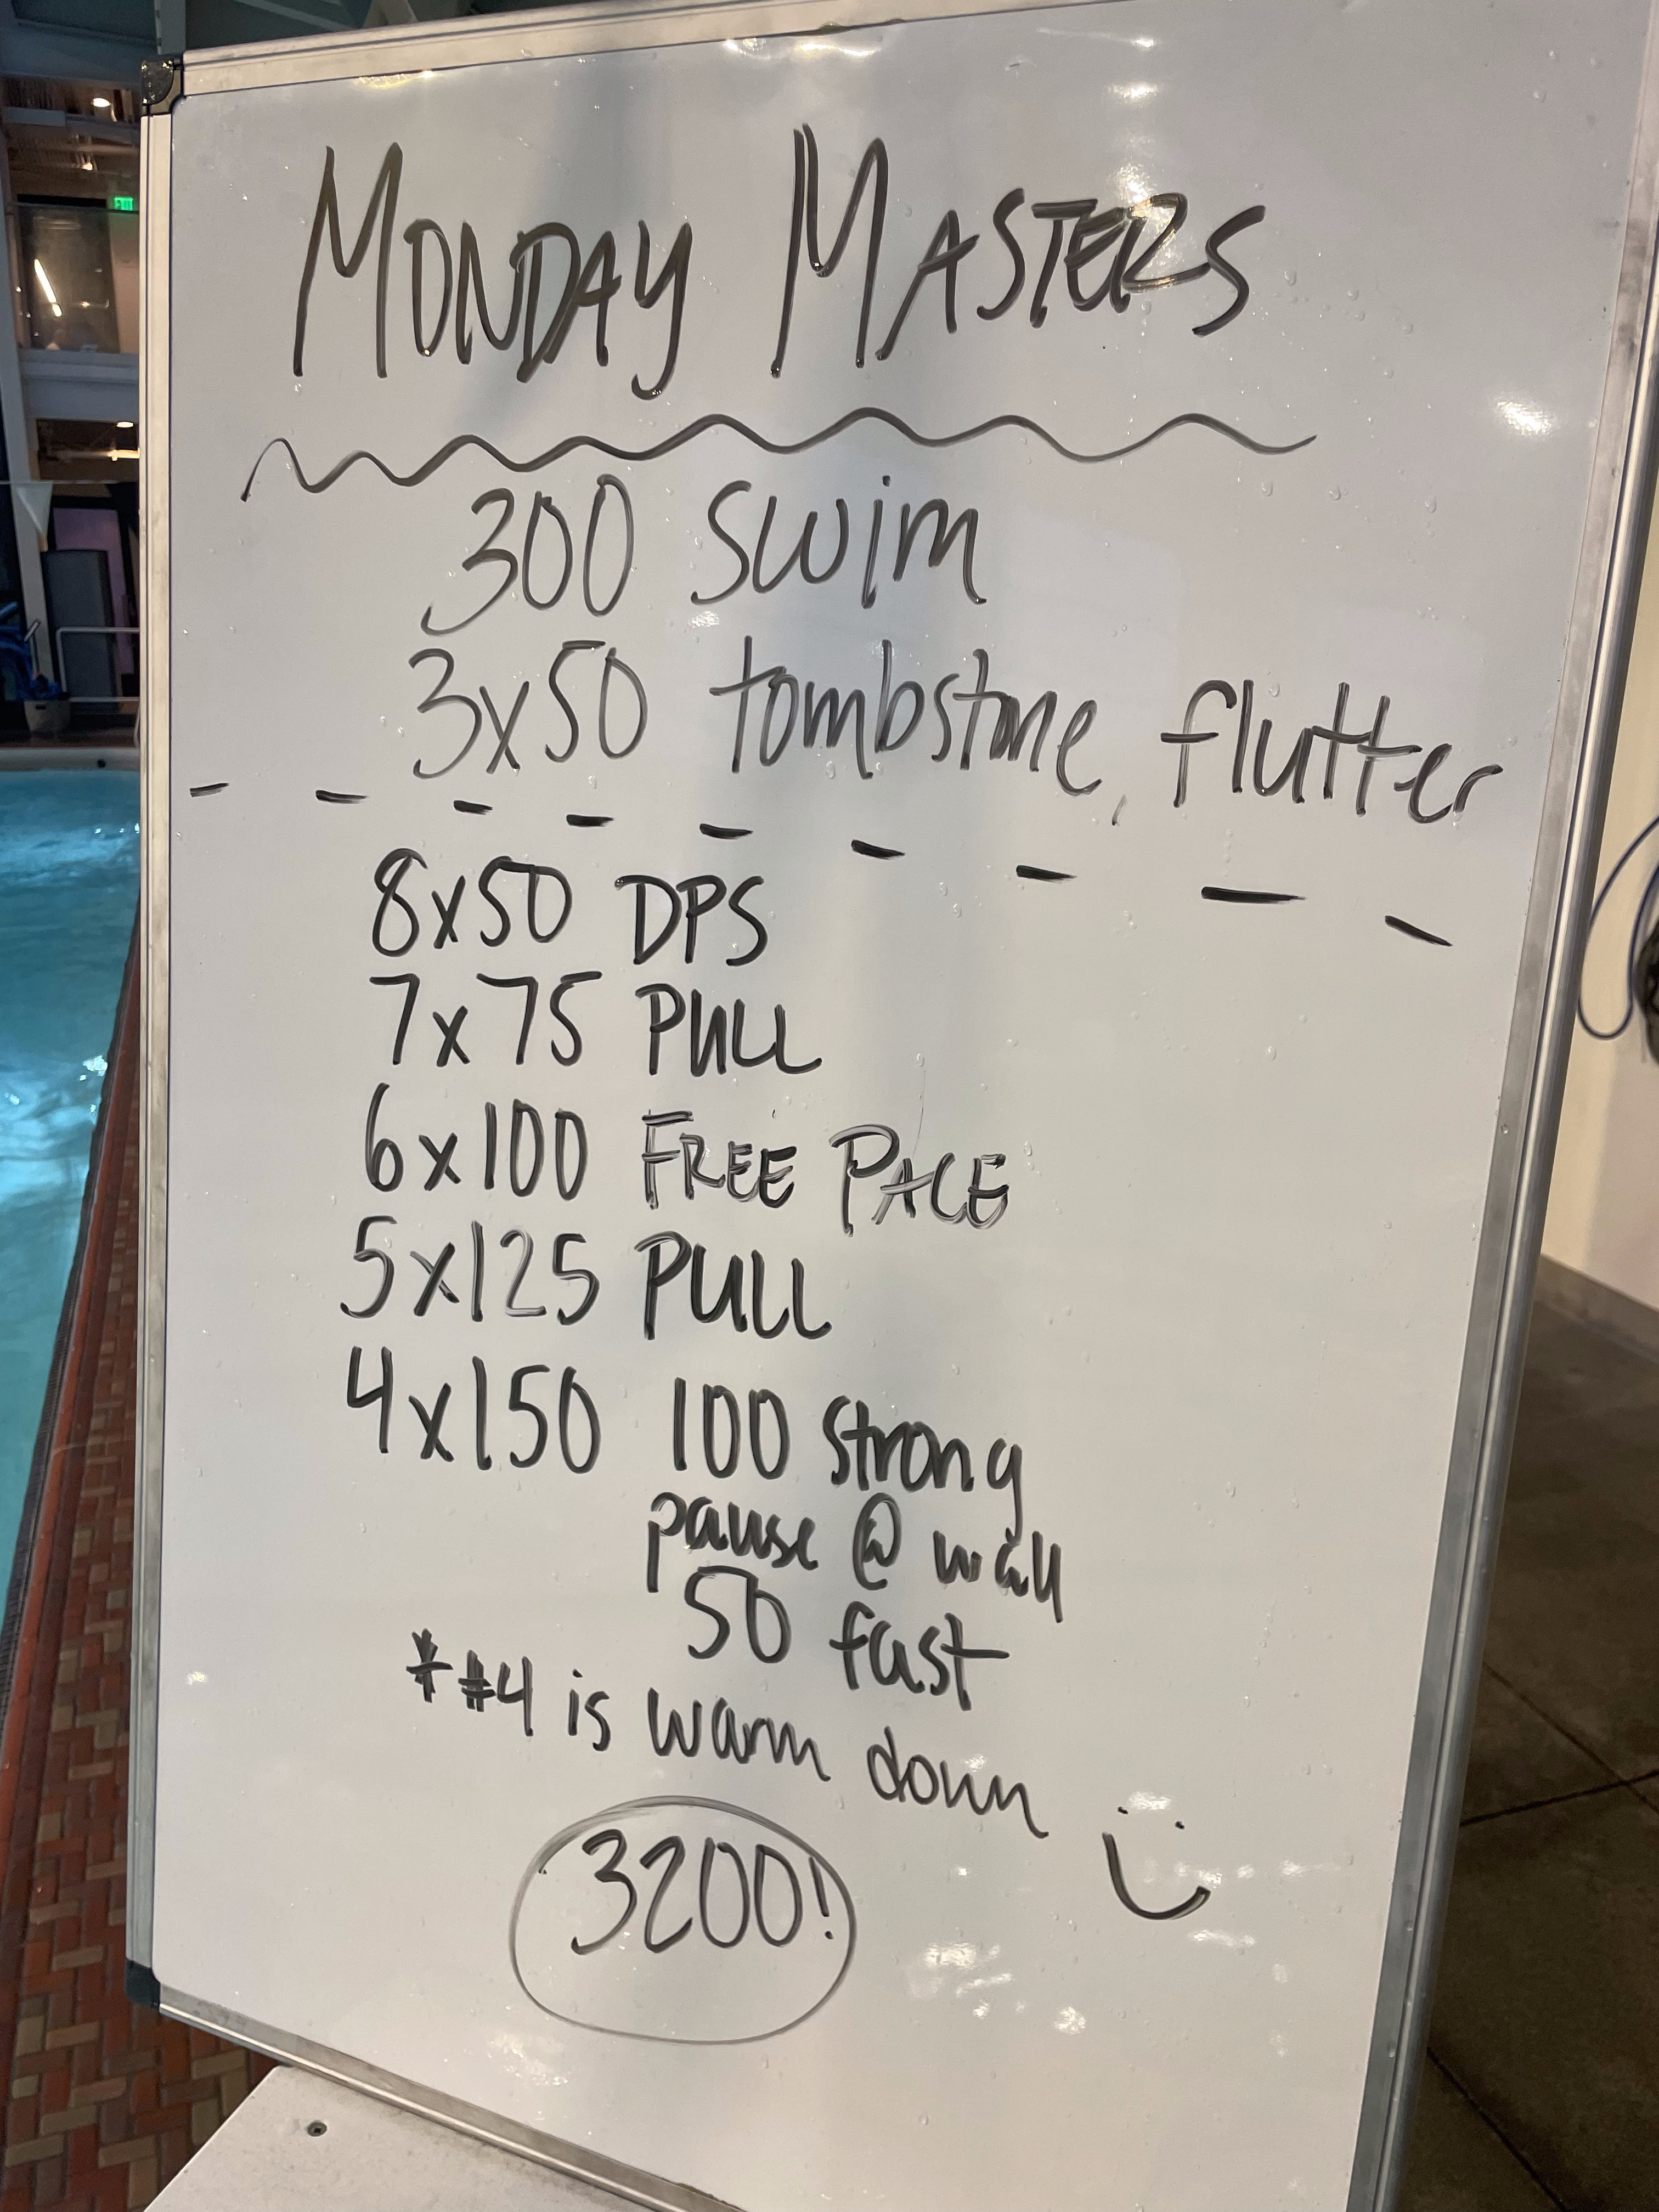 MONDAY MASTERS
300 swim
3x50 tombstone, flutter
8x50 DPS
7x75 PULL
6x100 FREE PACE
5x125 PULL
4x150 100 strong
pause @ wall
50 fast
*#4 is warm down
3200!